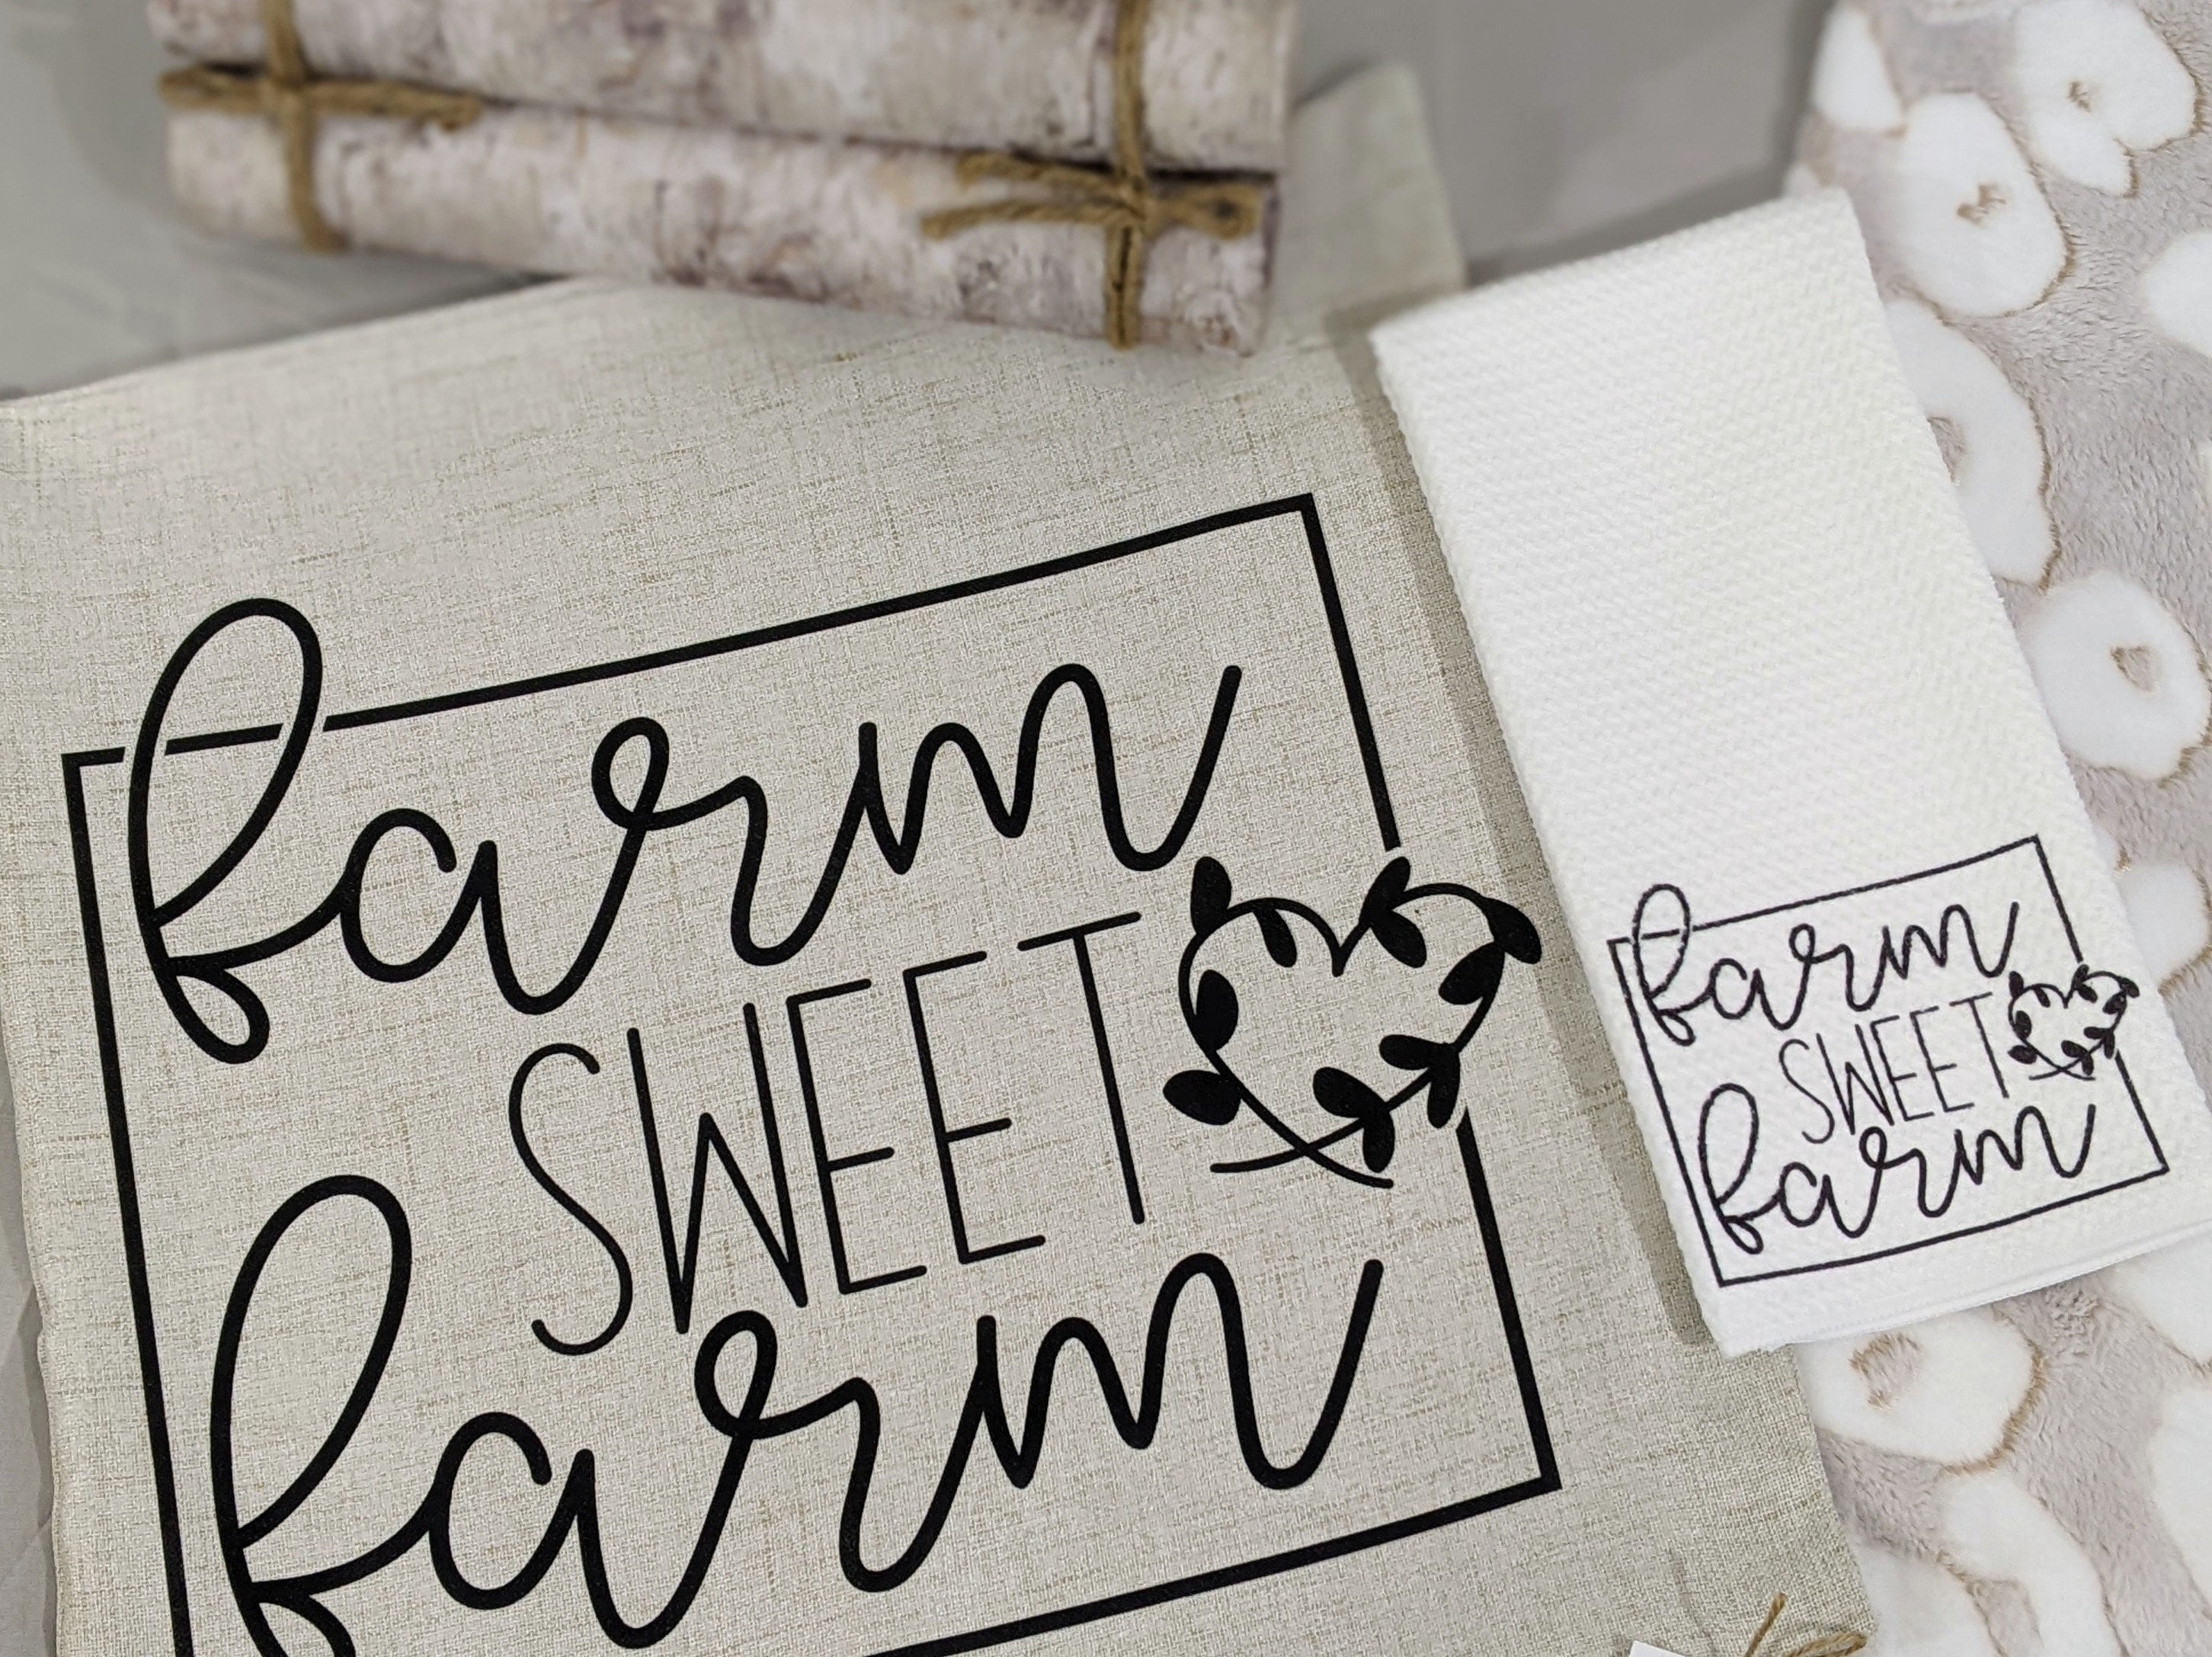 farm
SWEET
farm
farm
SWEET
farm